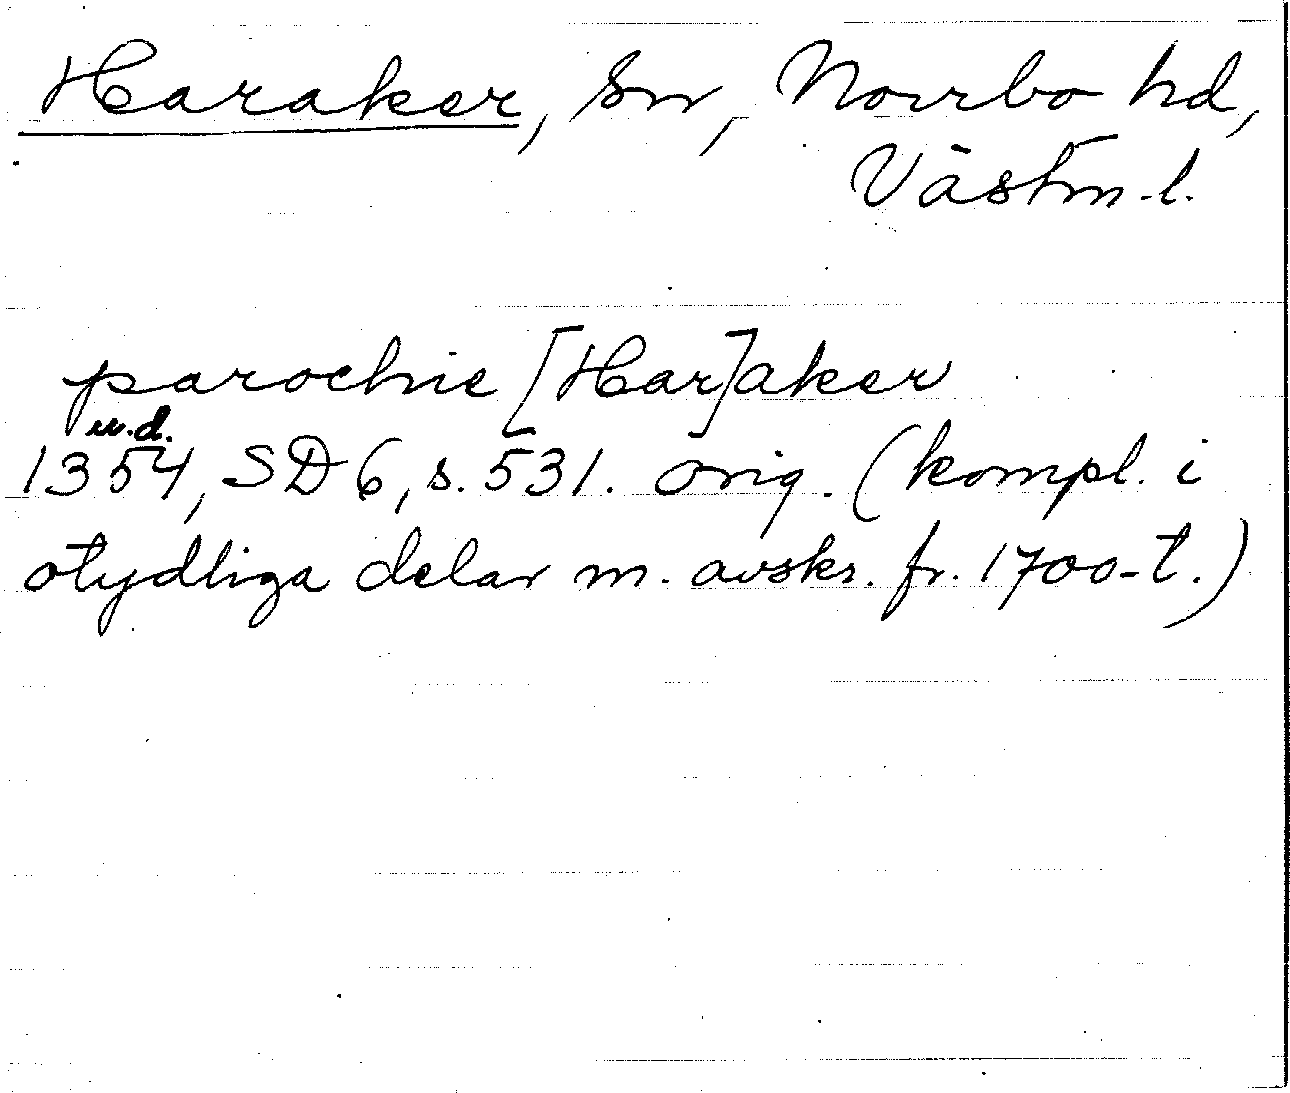 Haraker, sn, Norrbo hd,
Västm.l.
parochie [Har]aker
u.d.
1354, SD 6, s. 531. orig. (kompl. i
otydliga delar m. avskr. fr. 1700-t.)